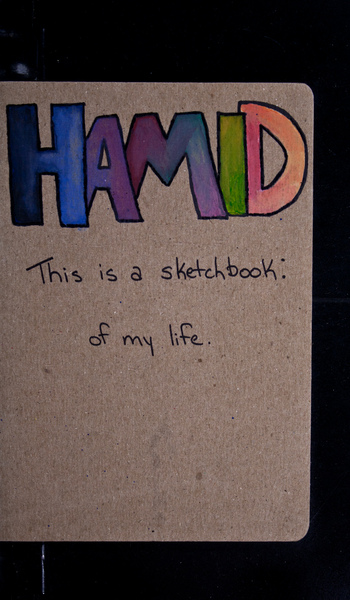 HAMID
This is a sketchbook:
of my life.